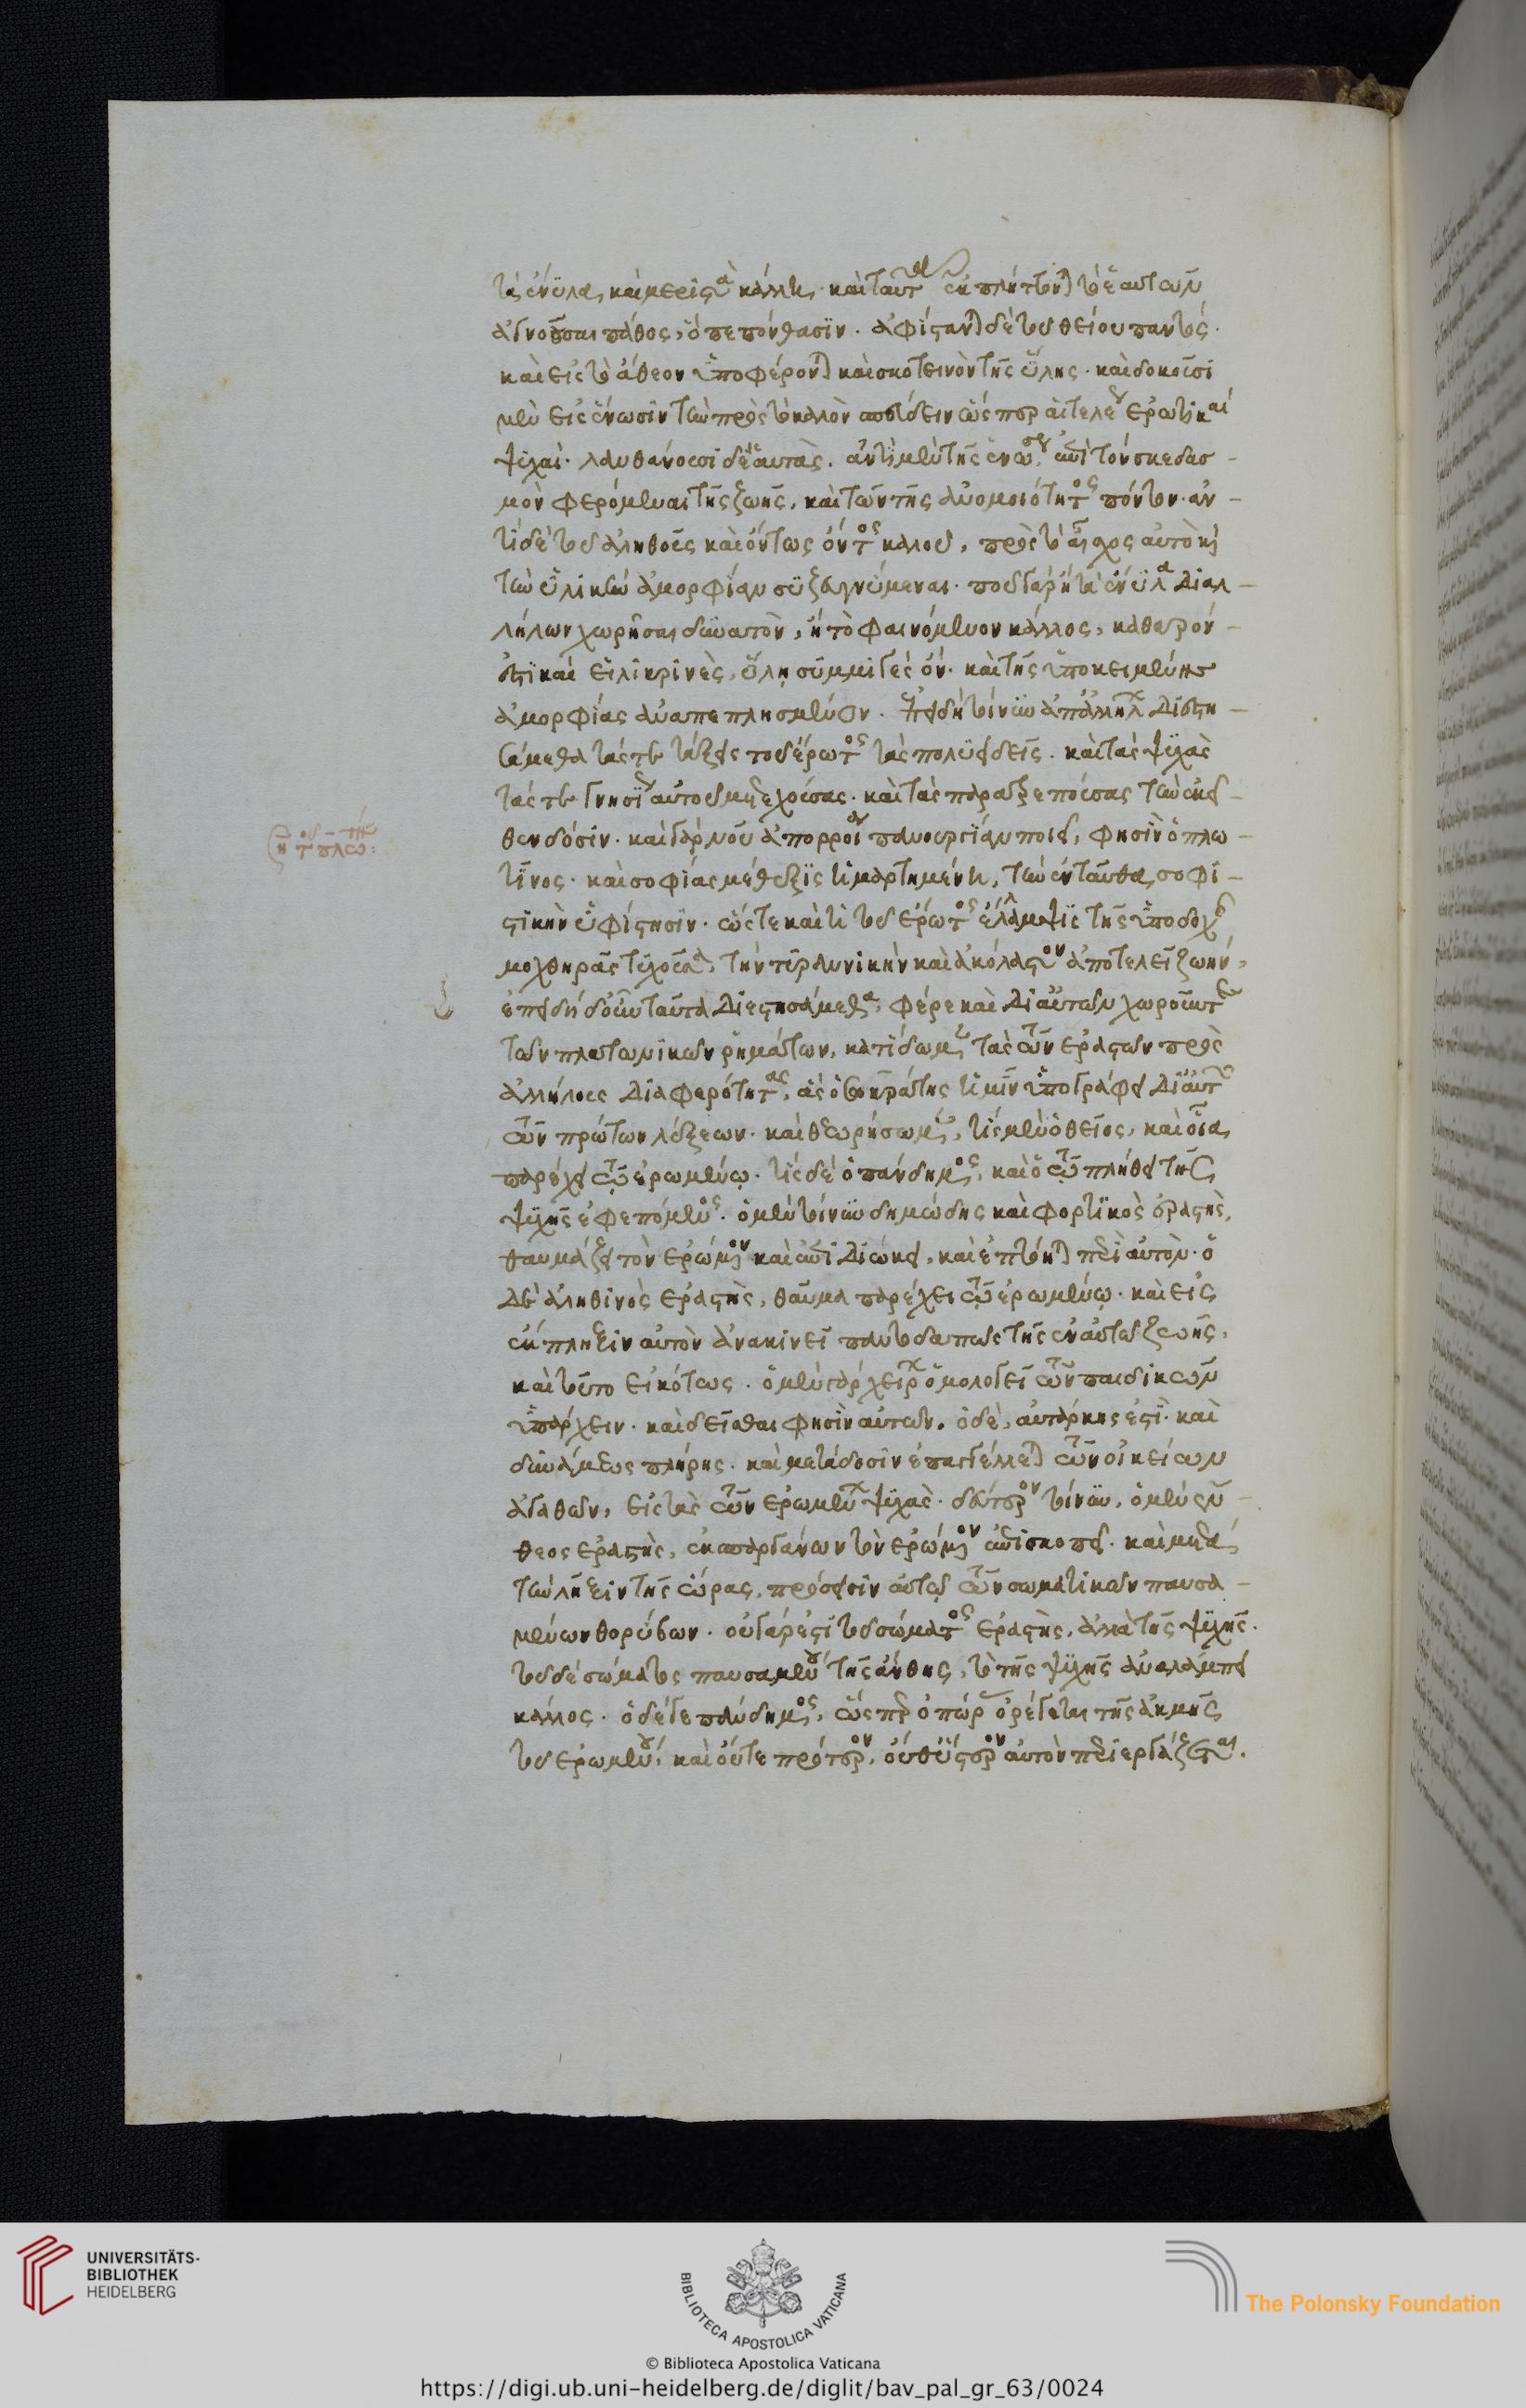 τὰ ἔνυλα, καὶ μεριστὰ κάλλη. καὶ ταῦτα ἐκπλήττονται τὸ ἑαυτῶν
ἀγνοοῦσαι πάθος, ὃ πεπόνθασιν. ἀφίστανται δὲ τοῦ θείου παντός.
καὶ εἰς τὸ ἄθεον ὑποφέρονται καὶ σκοτεινὸν τῆς ὕλης. καὶ δοκοῦσι
μὲν εἰς ἕνωσιν τὴν πρὸς τὸ καλὸν σπεύδειν ὥσπερ αἱ τέλειαι ἐρωτικαὶ
ψυχαί. λανθάνουσι δὲ ἑαυτὰς. ἀντὶ μὲν τῆς ἑνώσεως, ἐπὶ τὸν σκεδασ-
μὸν φερόμεναι τῆς ζωῆς, καὶ τὸν τῆς ἀνομοιότητος πόντον. ἀν-
τὶ δὲ τοῦ ἀληθοῦς καὶ ὄντως ὄντος καλοῦ, πρὸς τὸ αἶσχος αὐτὸ καὶ
τὴν ὑλικὴν ἀμορφίαν συζευγνύμεναι. ποῦ γὰρ ἢ τὰ ἔνυλα δι' ἀλ-
λήλων χωρῆσαι δυνατὸν, ἢ τὸ φαινόμενον κάλλος, καθαρόν
ἐστι καὶ εἰλικρινὲς, ὕλῃ συμμιγὲς ὄν. καὶ τῆς ὑποκειμένης
ἀμορφίας ἀναπεπλησμένον. ἐπειδὴ τοίνυν ἀπ' ἀλλήλων διεστη-
σάμεθα τάς τε τάξεις τοῦ ἔρωτος τὰς πολυειδεῖς. καὶ τὰς ψυχὰς
τάς τε γνησίως αὐτοῦ μετεχούσας. καὶ τὰς παρατρεπούσας τὴν ἐκεῖ-
θεν δόσιν. καὶ γὰρ νοῦ ἀπόρροια πανουργίαν ποιεῖ, φησὶν ὁ πλω-
τῖνος. καὶ σοφίας μέθεξις ἡμαρτημένη, τὴν ἐνταῦθα σοφι-
στικὴν ὑφίστησιν. ὥστε καὶ ἡ τοῦ ἔρωτος ἔλλαμψις τῆς ὑποδοχῆς
μοχθηρᾶς τυχοῦσα, τὴν τυραννικὴν καὶ ἀκόλαστον ἀποτελεῖ ζωήν.
ἐπειδὴ δ' οὖν ταῦτα διεστησάμεθα, φέρε καὶ δι' αὐτῶν χωροῦντες
τῶν πλατωνικῶν ῥημάτων, κατίδωμεν τὰς τῶν ἐραστῶν πρὸς
ἀλλήλους διαφορότητας, ἃς ὁ σωκράτης ἡμῖν ὑπογράφει δι' αὐτῶν
τῶν πρώτων λέξεων. καὶ θεωρήσωμεν, τίς μὲν ὁ θεῖος, καὶ οἷα
παρέχει τῷ ἐρωμένῳ. τίς δὲ ὁ πάνδημος, καὶ ὁ τῷ πλήθει τῆς
ψυχῆς ἐφεπόμενος. ὁ μὲν τοίνυν δημώδης καὶ φορτικὸς ἐραστὴς,
θαυμάζει τὸν ἐρώμενον καὶ ἐπιδιώκει, καὶ ἐπτόηται περὶ αὐτὸν. ὁ
δὲ ἀληθινὸς ἐραστὴς, θαῦμα παρέχει τῷ ἐρωμένῳ. καὶ εἰς
ἔκπληξιν αὐτὸν ἀνακινεῖ παντοδαπῶς τῆς ἐν αὐτῷ ζωῆς.
καὶ τοῦτο εἰκότως. ὁ μὲν γὰρ χείρων ὁμολογεῖ τῶν παιδικῶν
ὑπάρχειν. καὶ δεῖσθαι φησὶν αὐτῶν. ὁ δὲ, αὐτάρκης ἐστὶ. καὶ
δυνάμεως πλήρης. καὶ μετάδοσιν ἐπαγγέλλεται τῶν οἰκείων
ἀγαθῶν, εἰς τὰς τῶν ἐρωμένων ψυχὰς. δεύτερον τοίνυν, ὁ μὲν ἔν-
θεος ἐραστὴς, ἐκ σπαργάνων τὸν ἐρώμενον ἐπισκοπεῖ. καὶ μετὰ
τὴν λῆξιν τῆς ὥρας, πρόσεισιν αὐτῷ τῶν σωματικῶν παυσα-
μένων θορύβων. οὐ γάρ ἐστι τοῦ σώματος ἐραστὴς, ἀλλὰ τῆς ψυχῆς.
τοῦ δὲ σώματος παυσαμένου τῆς ἄνθης, τὸ τῆς ψυχῆς ἀναλάμπει
κάλλος. ὁ δέ γε πάνδημος, ὥσπερ ὀπώρας ὀρέγεται τῆς ἀκμῆς
τοῦ ἐρωμένου, καὶ οὔτε πρότερον, οὔθ' ὕστερον αὐτὸν περιεργάζεται.
UNIVERSITÄTS-
BIBLIOTHEK
HEIDELBERG
BIBLIOTECA APOSTOLICA VATICANA
The Polonsky Foundation
© Biblioteca Apostolica Vaticana
https://digi.ub.uni-heidelberg.de/diglit/bav_pal_gr_63/0024